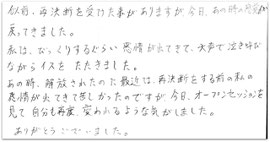 以前、再決断を受けた事がありますが、今日、あの時の感覚が
戻ってきました。
私は、びっくりするぐらい感情が出てきて、大声で泣き叫び
ながらイスをたたきました。
あの時、解放されたのに最近は、再決断をする前の私の
感情が出てきて苦しかったのですが、今日、オープンセッションを
見て自分も再度、変われるような気がしました。
ありがとうございました。